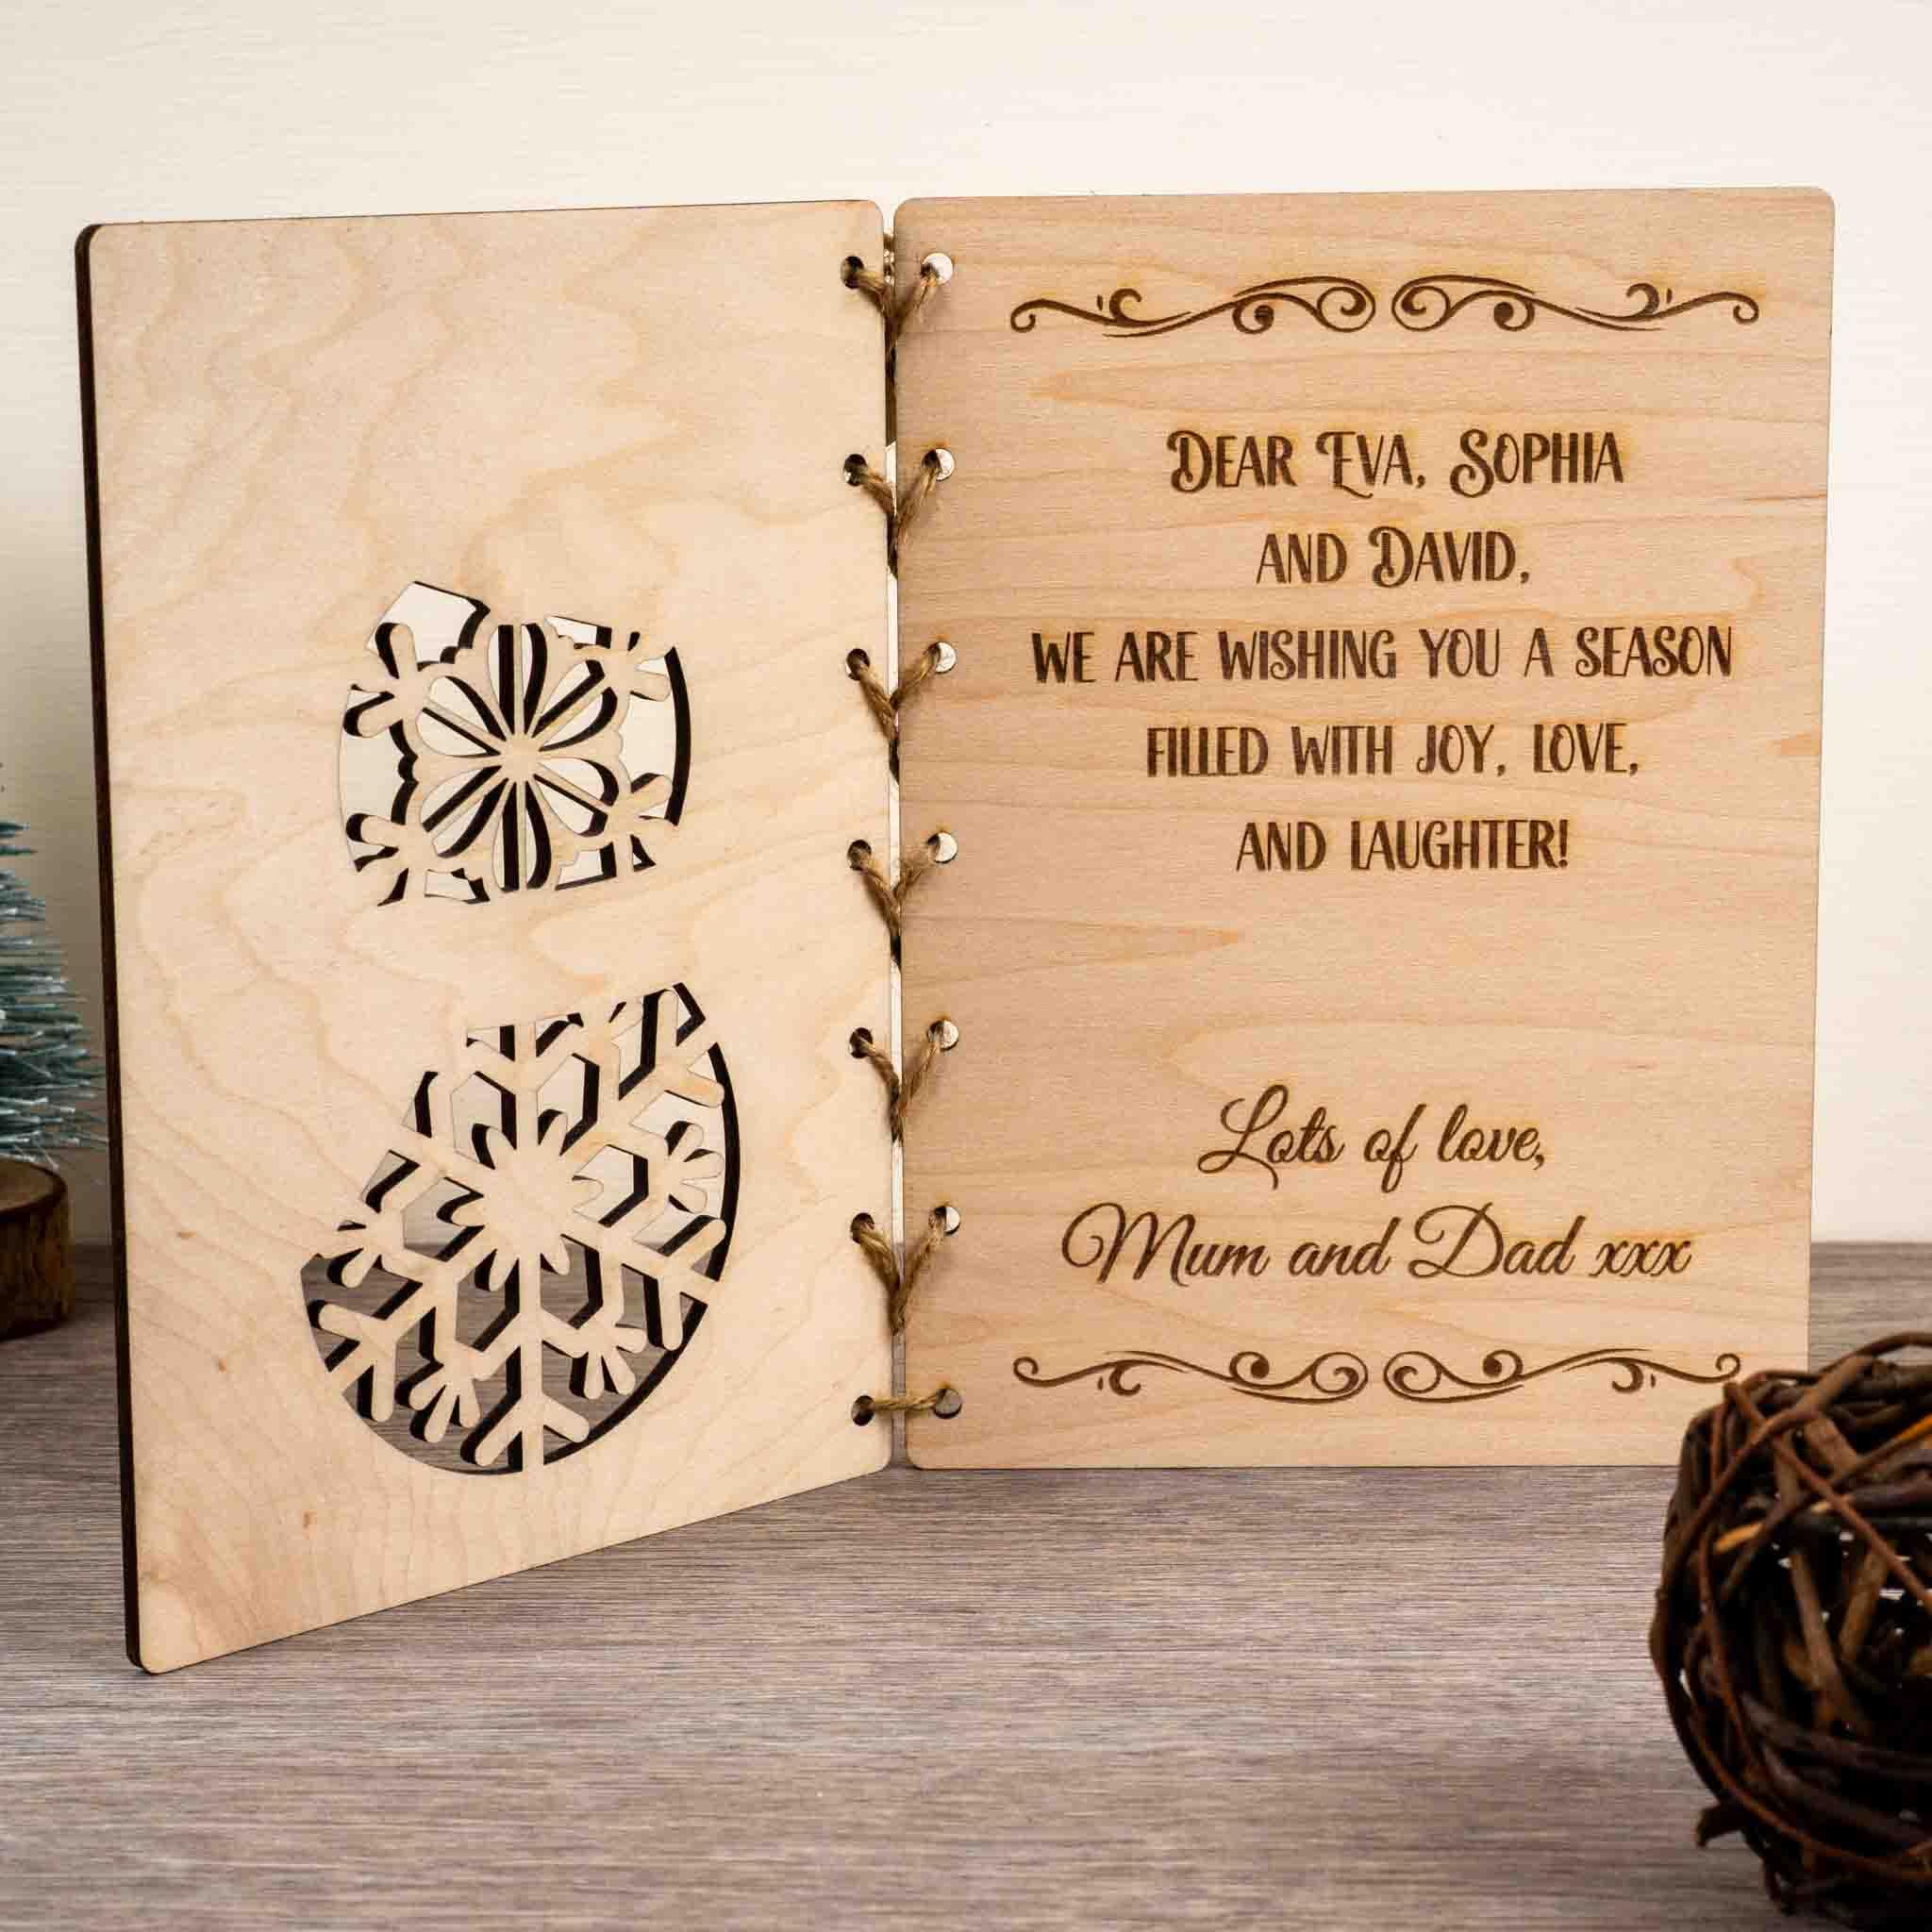 DEAR EVA, SOPHIA
AND DAVID,
WE ARE WISHING YOU A SEASON
FILLED WITH JOY, LOVE,
AND LAUGHTER!
Lots of love,
Mum and Dad xxx